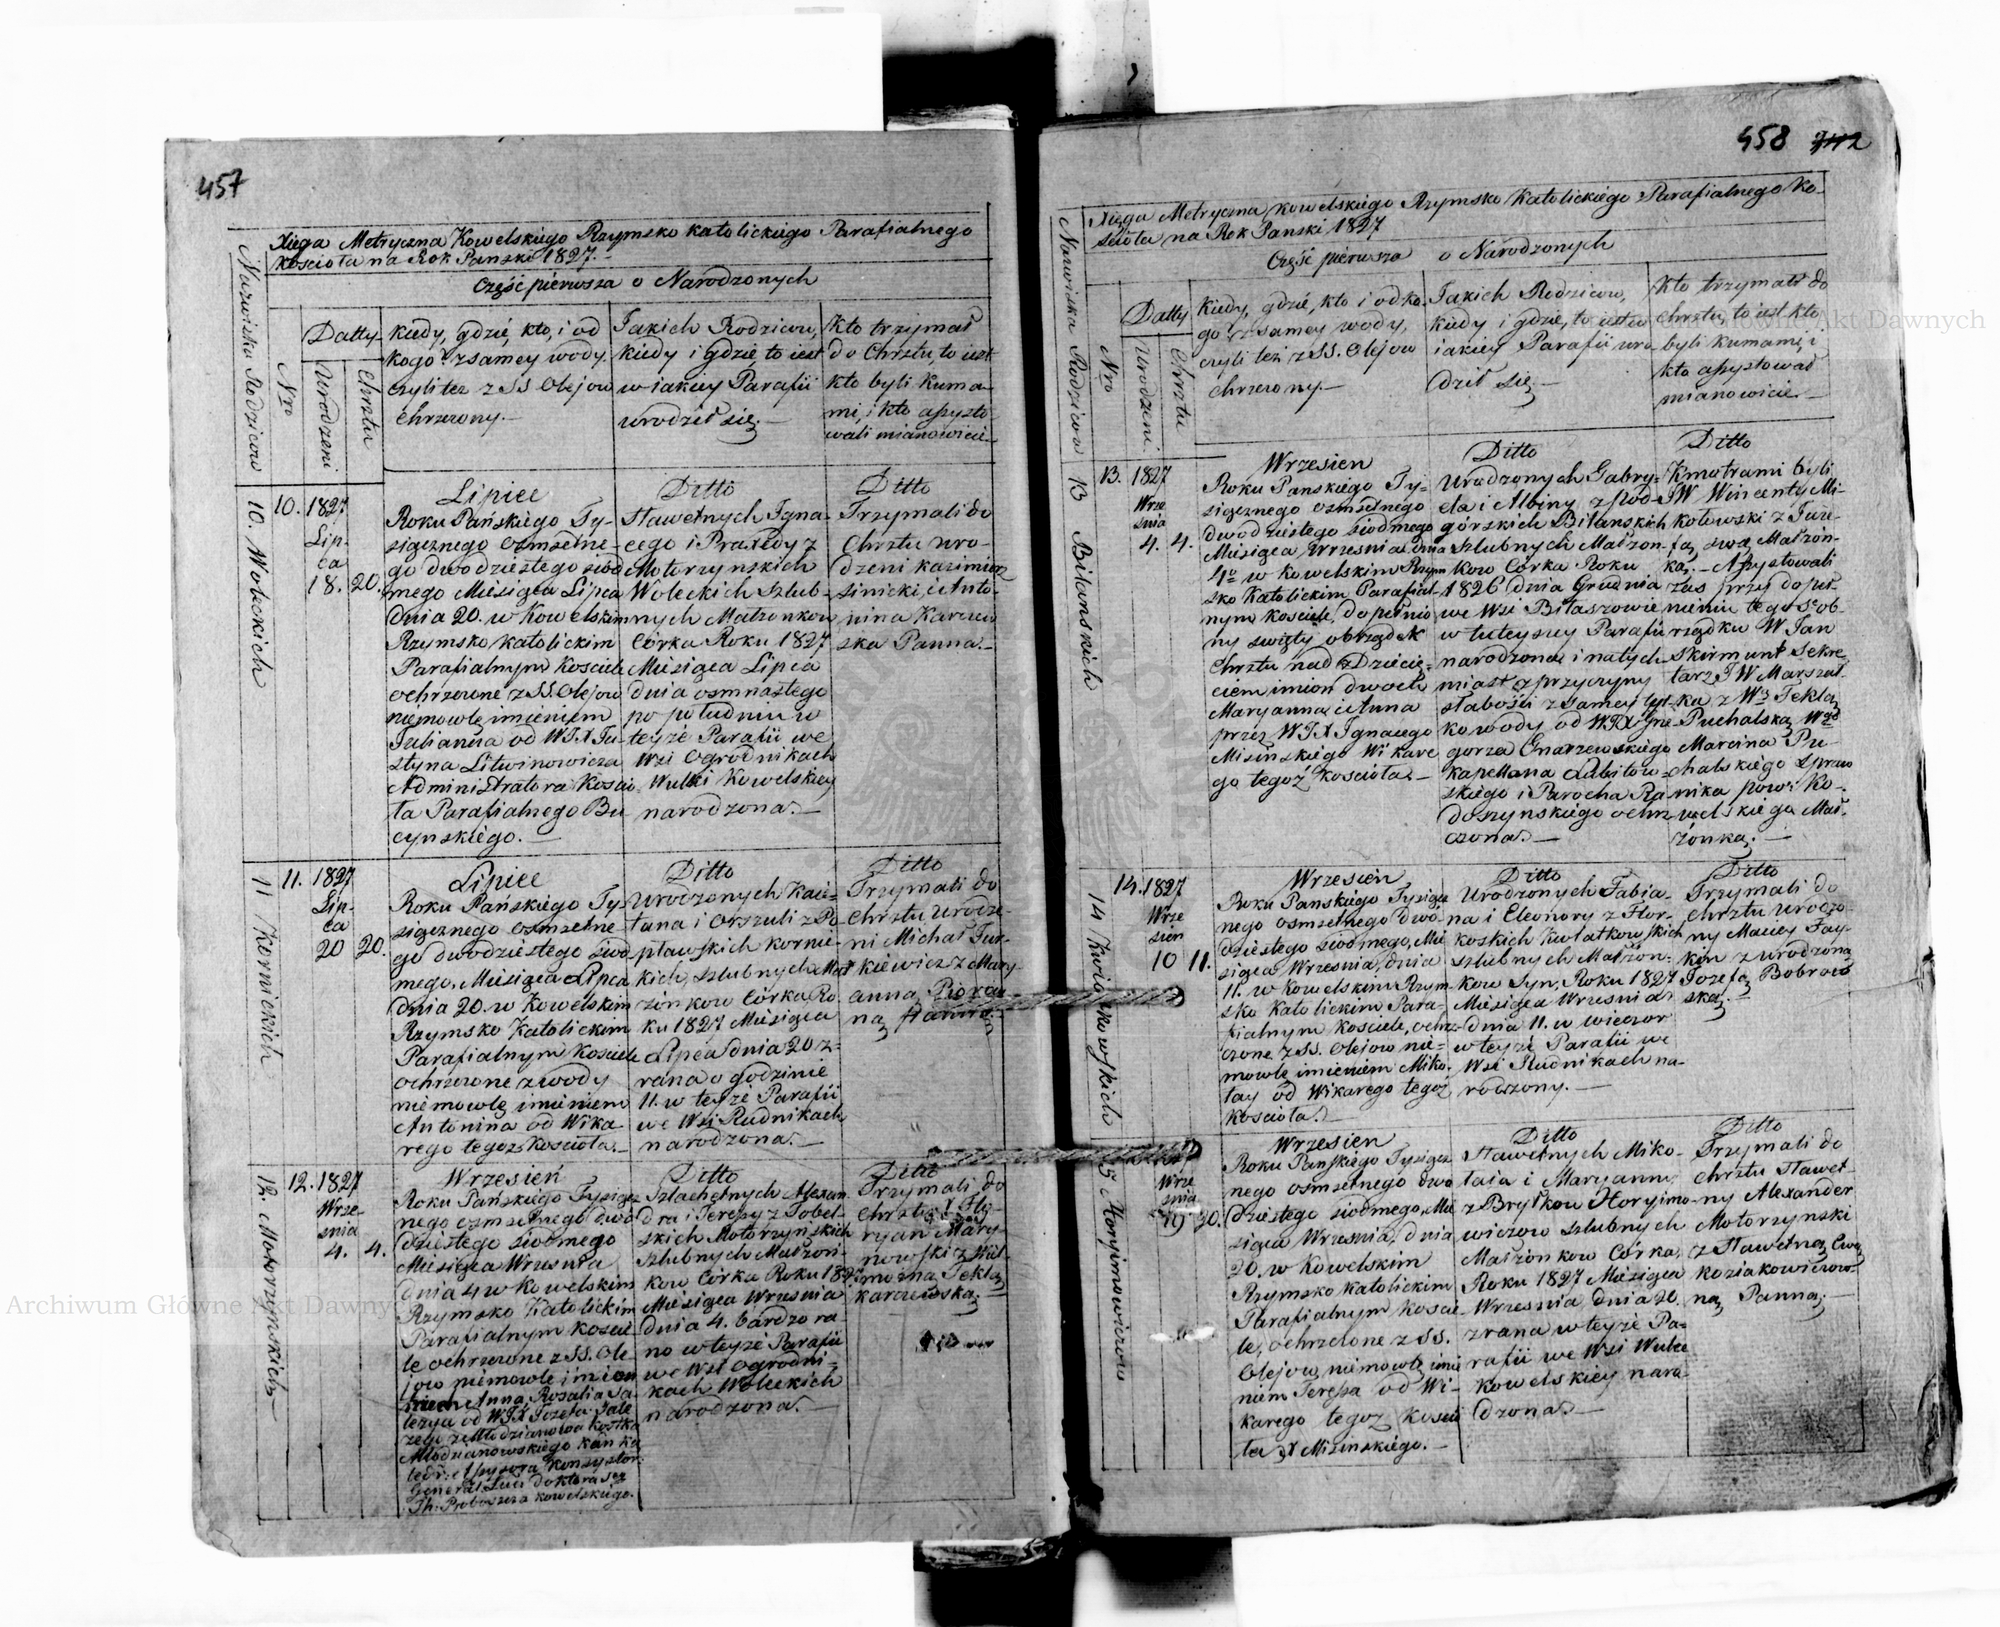 457
Xięga Metryczna Kowelskiego Rzymsko katolickiego Parafialnego
kościoła na Rok Panski 1827.
Część pierwsza o Narodzonych
Nazwiska Rodzicow
Nro
Datty
Urodzeni
Chrztu
kiedy, gdzie, kto, i od
kogo? z samey wody
czyli tez z SS Olejow
chrzczony.—
Jakich Rodzicow,
kiedy i gdzie to iest
w iakiey Parafii
urodził się.—
Kto trzymał
do Chrztu, to iest
kto byli kuma-
mi, i kto assysto-
wali mianowicie—
10. Woleckich
10. 1827
Lip-
ca
18. 20.
Lipiec
Roku Pańskiego Ty-
siącznego Osmsetne-
go dwudziestego siod
mego Miesiąca Lipca
dnia 20. w Kowelskim
Rzymsko katolickim
Parafialnym Kosciele
ochrzczone z SS. Olejow
niemowlę imieniem
Julianna od WJX Ju-
styna Litwinowicza
Administratora Koscio
ła Parafialnego Bu
cynskiego.—
Ditto
Sławetnych Igna-
cego i Praxedy z
Motorzynskich
Woleckich Szlub-
nych Małzonkow
Córka Roku 1827
Miesiąca Lipca
dnia osmnastego
po południu w
teyze Parafii we
Wsi Ogrodnikach
Wulki Kowelskiey
narodzona.—
Ditto
Trzymali do
Chrztu uro-
dzeni kazimierz
Sinicki, i Anto-
nina Karczew
ska Panna.—
11 Kornickich
11. 1827
Lip-
ca
20 20.
Lipiec
Roku Pańskiego Ty-
siącznego Osmsetne
go dwudziestego siod
mego, Miesiąca Lipca
dnia 20. w Kowelskim
Rzymsko Katolickim
Parafialnym Kosciele
ochrzczone z wody
niemowlę imieniem
Antonina od Wika
rego tegoz Koscioła.—
Ditto
Urodzonych Kaie-
tana i Orszuli z Po
pławskich kornic-
kich, Szlubnych Mał
zonkow Córka Ro
ku 1827 Miesiąca
Lipca dnia 20 z
rana o godzinie
11. w teyze Parafii
we Wsi Rudnikach
narodzona.—
Ditto
Trzymali do
Chrztu Urodze-
ni Michał Jur-
kiewicz z Mary
anną
ną
12. Motorzynskich—
12. 1827
Wrze-
śnia
4. 4.
Wrzesień
Roku Pańskiego Tysiącz
nego osmsetnego dwó
dziestego siodmego
Miesiąca Wrzesnia
dnia 4 w Kowelskim
Rzymsko Katolickim
Parafialnym Koscie
le ochrzczone z SS. Ole
iow niemowle imion
Anna, Rosalia Wa-
lerya od WJX Jozefa
Młodzianowskiego kan ka
tedr: Assysora Konsystor:
General: Łuck: Doktora Sgo
Th: Proboszcza kowelskiego.
Ditto
Szlachetnych Alexan
dra i Teressy z Sobol-
skich Motorzynskich
Szlubnych Małzon-
kow Córka Roku 1827
Miesiąca Wrzesnia
dnia 4. bardzo ra-
no w teyze Parafii
we Wsi Ogrodni-
kach Woleckich
narodzona.—
Ditto
Trzymali do
Chrztu
ryan Mary-
nowski z Wiel-
mozną Teklą
karczewską.—
458
Xięga Metryczna kowelskiego Rzymsko Katolickiego Parafialnego Ko-
scioła na Rok Panski 1827
Część pierwsza o Narodzonych
Nazwiska Rodzicow
Nro
Datty
Urodzeni
Chrztu
kiedy, gdzie, kto i od ko-
go? z samey wody,
czyli tez z SS. Olejow
chrzczony.—
Jakich Rodzicow,
kiedy i gdzie, to iest w
iakiey Parafii uro
dził się.—
Kto trzymał do
chrztu, to iest kto
byli kumami, i
kto assystował
mianowicie.—
13 Bilanskich
13. 1827
Wrze
snia
4. 4.
Wrzesien
Roku Panskiego Ty-
siącznego osmsetnego
dwudziestego siodmego
Miesiąca Wrzesnia dnia
4go w Kowelskim Rzym
sko Katolickim Parafial-
nym Kosciele, dopełnio
ny swięty obrządek
Chrztu nad Dziecię-
ciem imion dwoch
Maryanna i Anna
przez WJX Ignacego
Misinskiego Wikare
go tegoż kościoła.—
Ditto
Urodzonych Gabry-
ela i Albiny z Pod-
górskich Bilanskich
Szlubnych Małzon-
kow Córka Roku
1826 dnia Grudnia
we Wsi Biłaszowie
w tuteyszey Parafii
narodzona i natych
miast z przyczyny
słabości z samey tyl-
ko wody od WJX Grze
gorza Gnarzewskiego
kapellana Lubitow-
skiego i Parocha Ra
doszynskiego ochrz
czona.—
Ditto
Kmotrami byli
JW Wincenty Mi-
kołowski z Juze-
fą swą Małzon-
ką.— Assystowali
zas przy dopeł-
nieniu tego S. ob-
rządku W Jan
Skirmunt Sekre
tarz JW Marszał-
ka z Wą Teklą
Puchalską Wgo
Marcina Pu-
chalskiego Spraw
nika pow: Ko-
welskiego Mał-
żonką.—
14 Kwiatkowskich
14. 1827
Wrze
sień
10 11.
Wrzesień
Roku Panskiego Tysiącz
nego osmsetnego dwó-
dziestego siodmego, Mie
siąca Wrzesnia, dnia
11. w Kowelskim Rzym-
sko Katolickim Para-
fialnym Kosciele, ochrz-
czone z SS. Olejow nie-
mowlę imieniem Miko-
łay od Wikarego tegoż
kościoła.—
Ditto
Urodzonych Fabia-
na i Eleonory z Flor-
koskich Kwiatkowskich
Szlubnych Małzon-
kow Syn, Roku 1827
Miesiąca Wrzesnia
dnia 11. w wieczor
w teyże Parafii we
Wsi Rudnikach na-
rodzony.—
Ditto
Trzymali do
chrztu Urodzo
ny Maciey Fay-
kon z urodzoną
Jozefą Bobrow
ską.—
15 Horyimowiczow
Wrze
snia
19 20.
Wrzesien
Roku Pańskiego Tysiącz
nego osmsetnego dwó
dziestego siodmego, Mie
siąca Wrzesnia, dnia
20. w Kowelskim
Rzymsko Katolickim
Parafialnym Koscie-
le, ochrzczone z SS.
Olejow niemowlę imie
niem Teressa od Wi-
karego tegoz Koscio
ła X Misinskiego.—
Ditto
Sławetnych Miko-
łaia i Maryanny
z Brytkow Horyimo-
wiczow Szlubnych
Małzonkow Córka,
Roku 1827 Miesiąca
Wrzesnia dnia 20.
z rana w teyże Pa-
rafii we Wsi Wulce
Kowelskiey naro-
dzona.—
Ditto
Trzymali do
chrztu Sławet-
ny Alexander
Motorzynski
z Sławetną Ewą
Koziakowiczow-
ną Panną.—
Archiwum Główne Akt Dawnych
Archiwum Główne Akt Dawnych